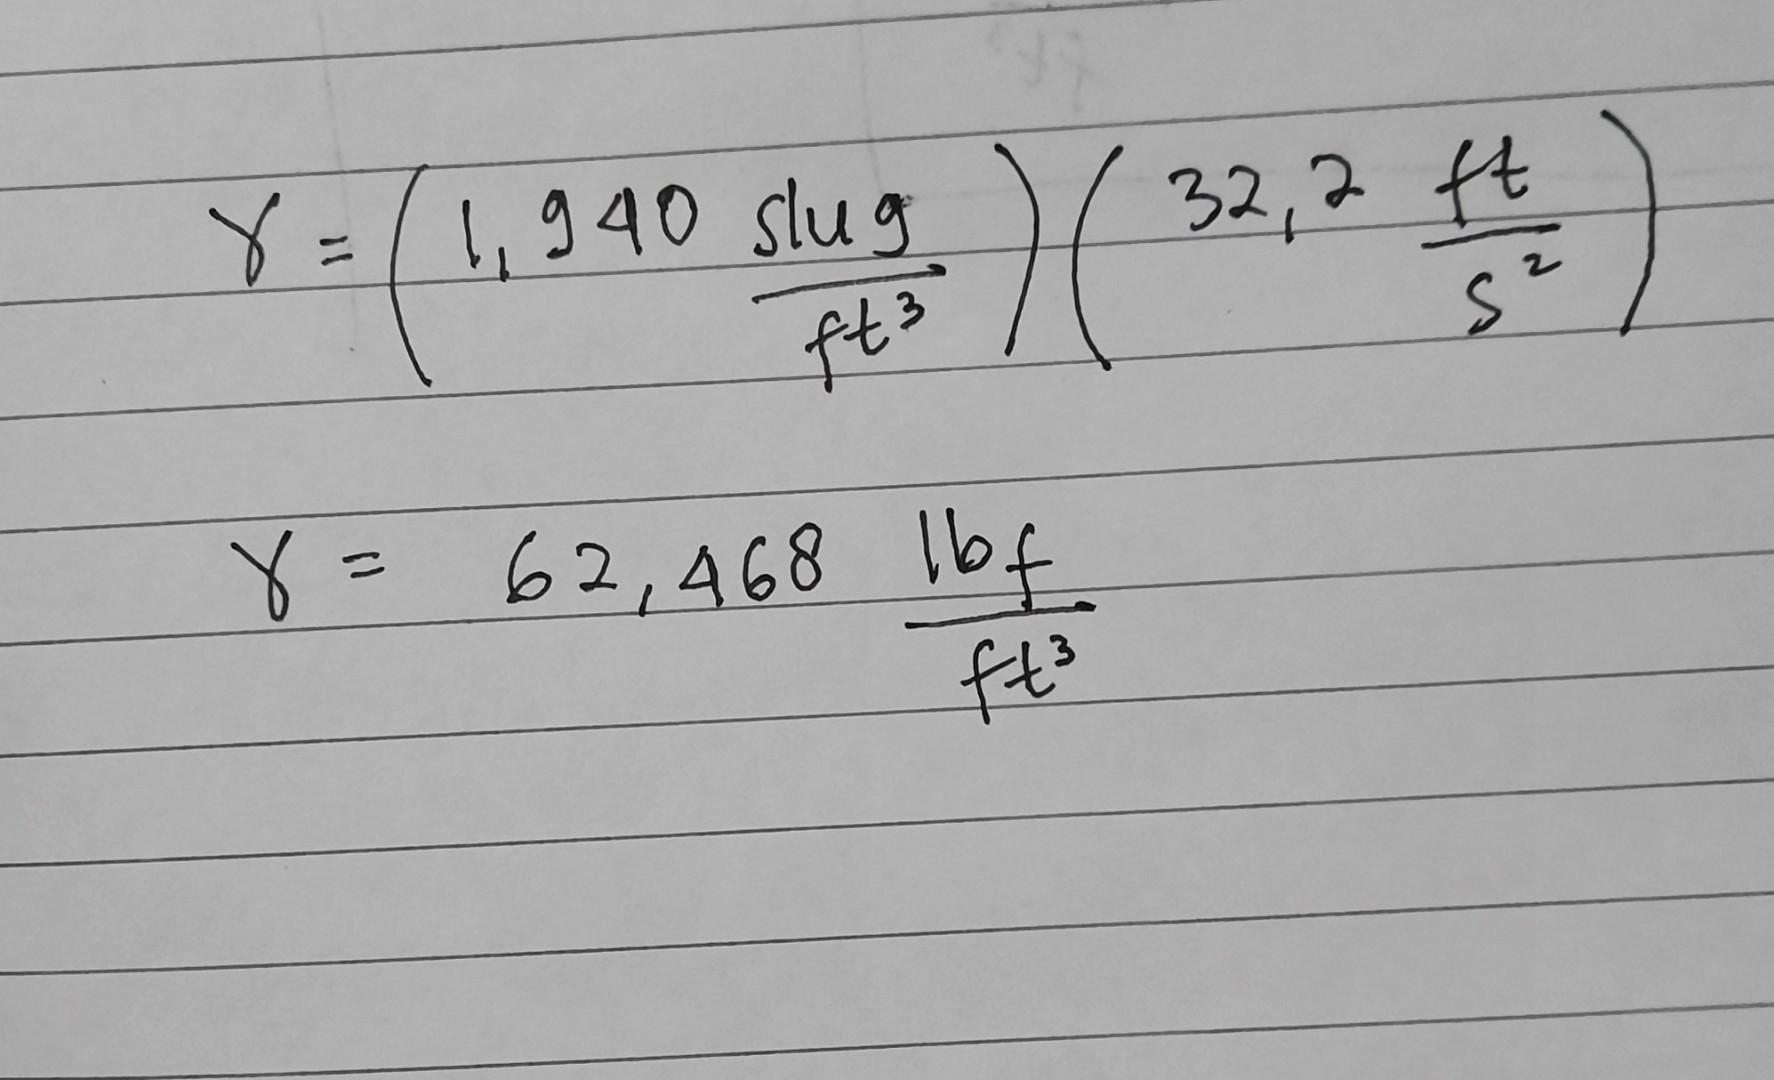 γ = (1,940 slug/ft³)(32,2 ft/s²)
γ = 62,468 lbf/ft³